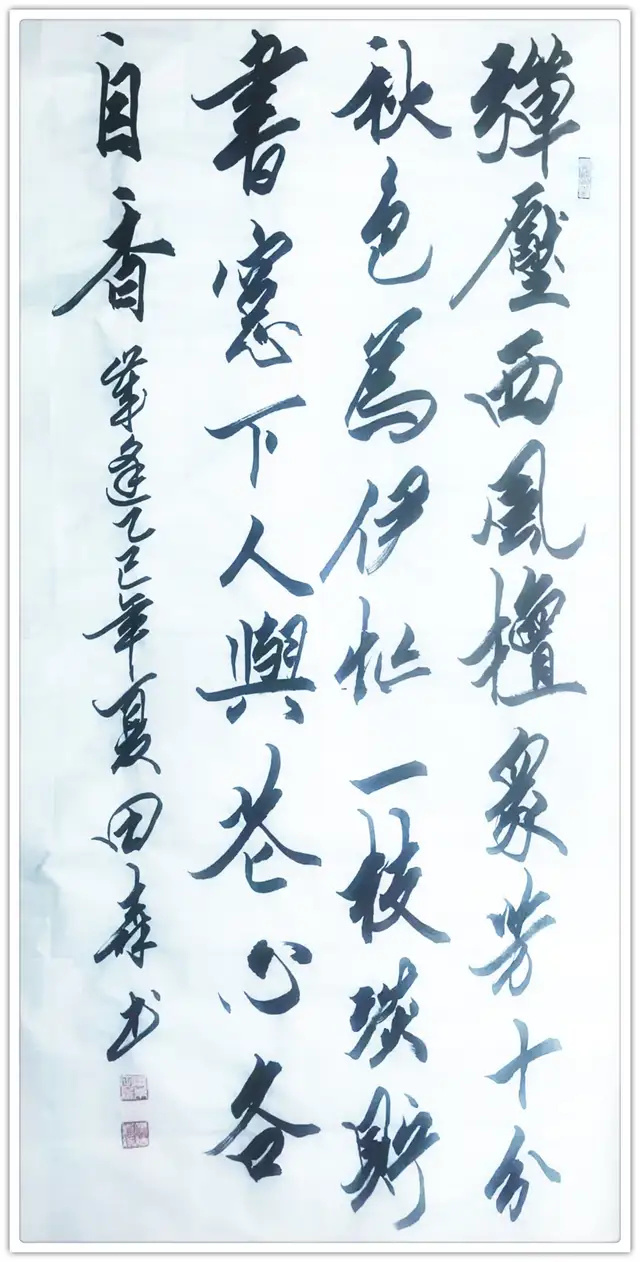 彈壓西風擅眾芳十分
秋色為伊忙一枝淡貯
書窓下人與花心各
自香 歲逢乙巳年夏田森书